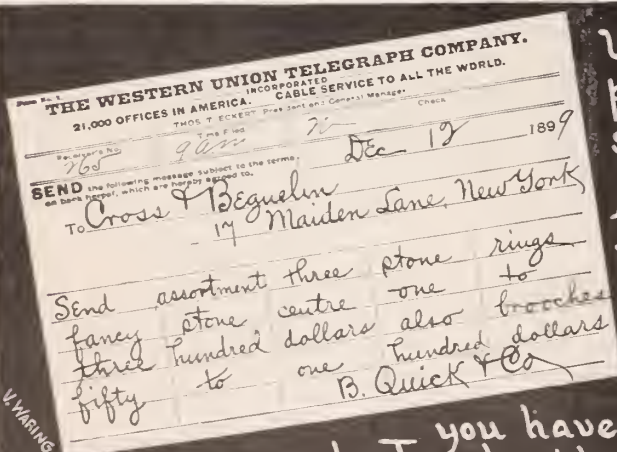 Form No. 1.
THE WESTERN UNION TELEGRAPH COMPANY.
INCORPORATED
21,000 OFFICES IN AMERICA. CABLE SERVICE TO ALL THE WORLD.
THOS. T. ECKERT, President and General Manager.
Receiver's No. Time Filed Check
765 9 am
Dec 12 1899
SEND the following message subject to the terms
on back hereof, which are hereby agreed to.
To Cross & Beguelin
- 17 Maiden Lane, New York
Send assortment three stone rings
fancy stone centre one to
three hundred dollars also brooches
fifty to one hundred dollars
B. Quick & Co
V. WARING
I you have